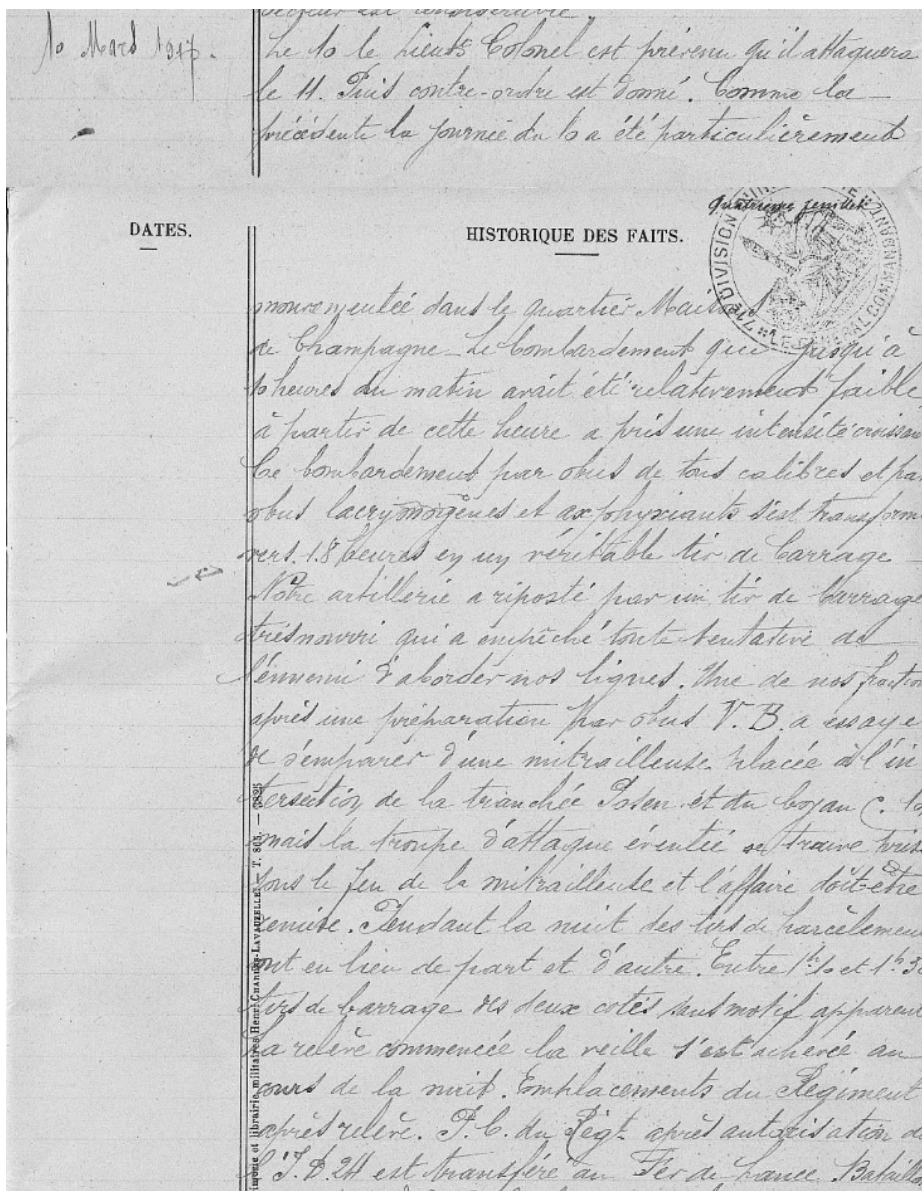 secteur est
10 Mars 1917.
Le 10 le Lieut Colonel est prévenu qu'il attaquera
le 11. Puis contre-ordre est donné. Comme la
précédente la journée du 10 a été particulièrement
Quatrième feuillet
DATES.
HISTORIQUE DES FAITS.
DIVISION
LE GÉNÉRAL COMMANDANT
mouvementée dans le quartier
de Champagne. Le bombardement que jusqu'à
10 heures du matin avait été relativement faible
à partir de cette heure a pris une intensité croissan
Ce bombardement par obus de tous calibres et par
obus lacrymogènes et axphyxiants s'est transform
vers 18 heures en un véritable tir de barrage
Notre artillerie a riposté par un tir de barrage
très nourri qui a empêché toute tentative de
l'ennemi d'aborder nos lignes. Une de nos fraction
après une préparation par obus V.B. a essayé
de s'emparer d'une mitrailleuse placée à l'in
tersection de la tranchée Posen et du boyau C.
mais la troupe d'attaque éventée se trouve prise
sous le feu de la mitrailleuse et l'affaire doit être
remise. Pendant la nuit des tirs de harcèlement
ont eu lieu de part et d'autre. Entre 1h10 et 1h30
tirs de barrage des deux cotés sans motif apparent
La relève commencée la veille s'est achevée au
cours de la nuit. Emplacements du Régiment
après relève. P.C. du Régt. après autorisation de
l'I.D. est transféré au Fer de Lance Bataillon
imerie et librairie militaires Henri CHARLES-LAVAUZELLE. — T. 805. —